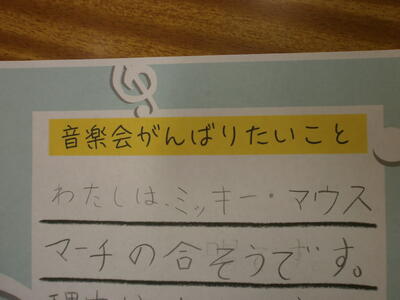 音楽会がんばりたいこと
わたしは、ミッキー・マウス
マーチの合そうです。